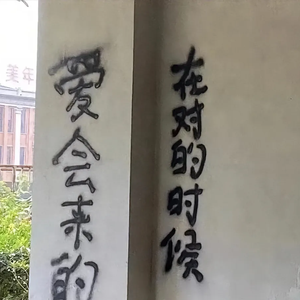 美年
爱会来的
在对的时候